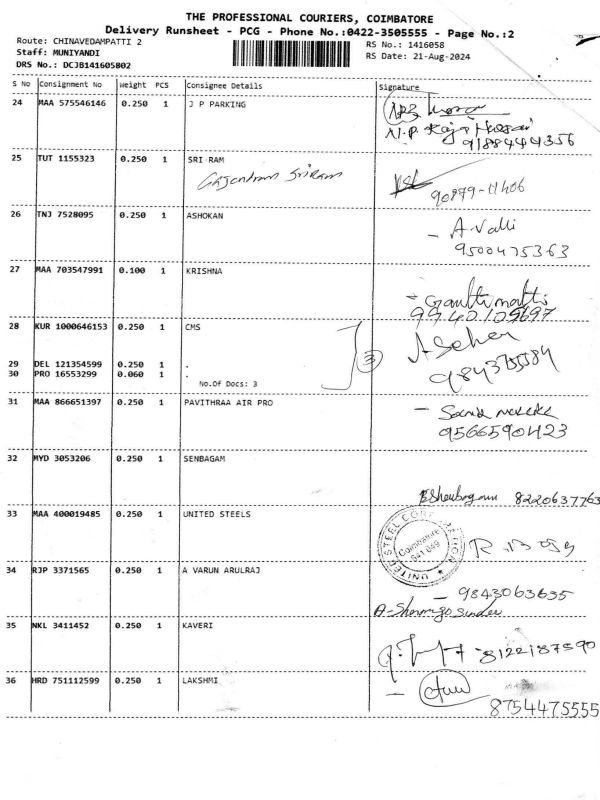 THE PROFESSIONAL COURIERS, COIMBATORE
Delivery Runsheet - PCG - Phone No.:0422-3505555 - Page No.:2
Route: CHINAVEDAMPATTI 2 RS No.: 1416058
Staff: MUNIYANDI RS Date: 21-Aug-2024
DRS No.: DCJB141605802
S No Consignment No Weight PCS Consignee Details Signature
24 MAA 575546146 0.250 1 J P PARKING
9188444356
25 TUT 1155323 0.250 1 SRI RAM
Gajendran Sriram
90879-11406
26 TNJ 7528095 0.250 1 ASHOKAN
- A. Valli
9500475363
27 MAA 703547991 0.100 1 KRISHNA
9940105697
28 KUR 1000646153 0.250 1 CMS
3
29 DEL 121354599 0.250 1 .
30 PRO 16553299 0.060 1 .
No.Of Docs: 3
31 MAA 866651397 0.250 1 PAVITHRAA AIR PRO
9566590423
32 MYD 3053206 0.250 1 SENBAGAM
8220637763
33 MAA 400019485 0.250 1 UNITED STEELS
UNITED STEEL CORPORATION
Coimbatore
641 049
34 RJP 3371565 0.250 1 A VARUN ARULRAJ
- 9843063635
35 NKL 3411452 0.250 1 KAVERI
8122187590
36 HRD 751112599 0.250 1 LAKSHMI
8754475555